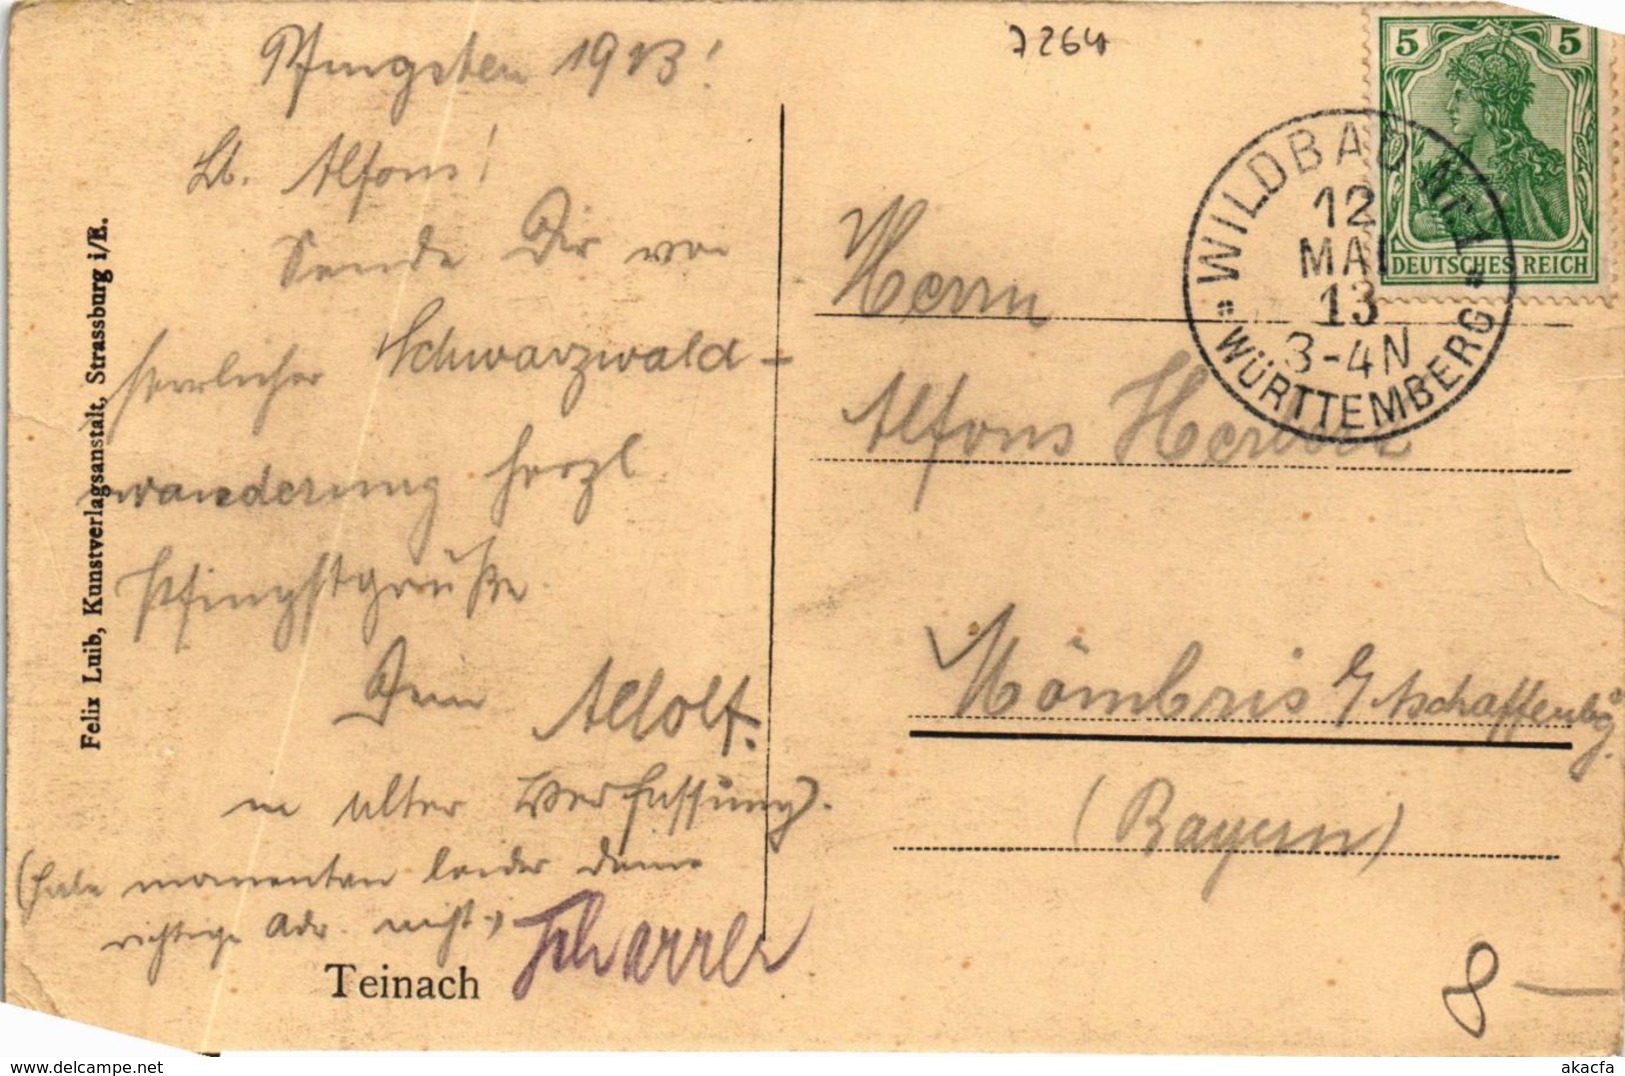 Pfingsten 1913!
Lb. Alfons!
Sende Dir von
herrlicher Schwarzwald-
wanderung herzl.
Pfingstgrüße.
Dein Adolf.
in alter Verfassung).
(habe momentan leider deine
richtige Adr. nicht.)
Scharrer
Teinach
Felix Luib, Kunstverlagsanstalt, Strassburg i/E.
7264
5 5
DEUTSCHES REICH
WILDBAD Nr. 1
12
MAI
13
3-4N
WÜRTTEMBERG
Herrn
Alfons
Mömbris b/ Aschaffenbg.
(Bayern)
8—
akacfa
https://www.delcampe.net